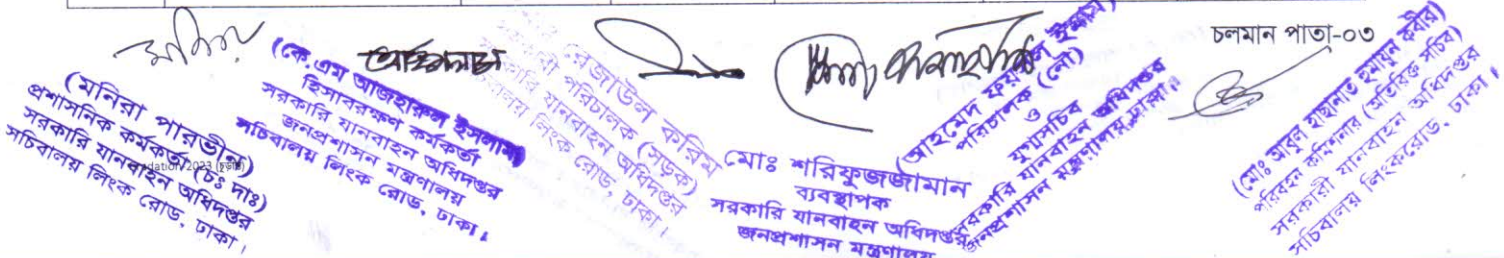 চলমান পাতা-০৩
(মনিরা পারভীন)
প্রশাসনিক কর্মকর্তা (চঃ দাঃ)
সরকারি যানবাহন অধিদপ্তর
সচিবালয় লিংক রোড, ঢাকা।
(কে. এম আজহারুল ইসলাম)
হিসাবরক্ষণ কর্মকর্তা
সরকারি যানবাহন অধিদপ্তর
জনপ্রশাসন মন্ত্রণালয়
সচিবালয় লিংক রোড, ঢাকা।
রেজাউল করিম
পরিচালক (সড়ক)
যানবাহন অধিদপ্তর
লিংক রোড, ঢাকা।
মোঃ শরিফুজজামান
ব্যবস্থাপক
সরকারি যানবাহন অধিদপ্তর
জনপ্রশাসন মন্ত্রণালয়
(আহমেদ ফয়সল ইমাম)
পরিচালক (নৌ)
ও
যুগ্মসচিব
সরকারি যানবাহন অধিদপ্তর
জনপ্রশাসন মন্ত্রণালয়, ঢাকা।
(মোঃ আবুল হাছানাত হুমায়ুন কবীর)
পরিবহন কমিশনার (অতিরিক্ত সচিব)
সরকারী যানবাহন অধিদপ্তর
সচিবালয় লিংকরোড, ঢাকা।